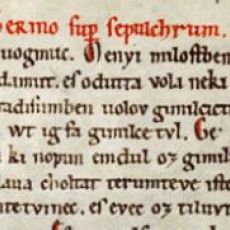 Sermo sup sepulchrum.
uogmuc. Menyi milostben
damut. es odutta vola neki
radisumben uolov gimilcict
wt ig fa gimilce tvl. Ge
ki nopun emdul oz gimil
laua choltat terumteve iste
ntetvinec. es evec oz tiluvt